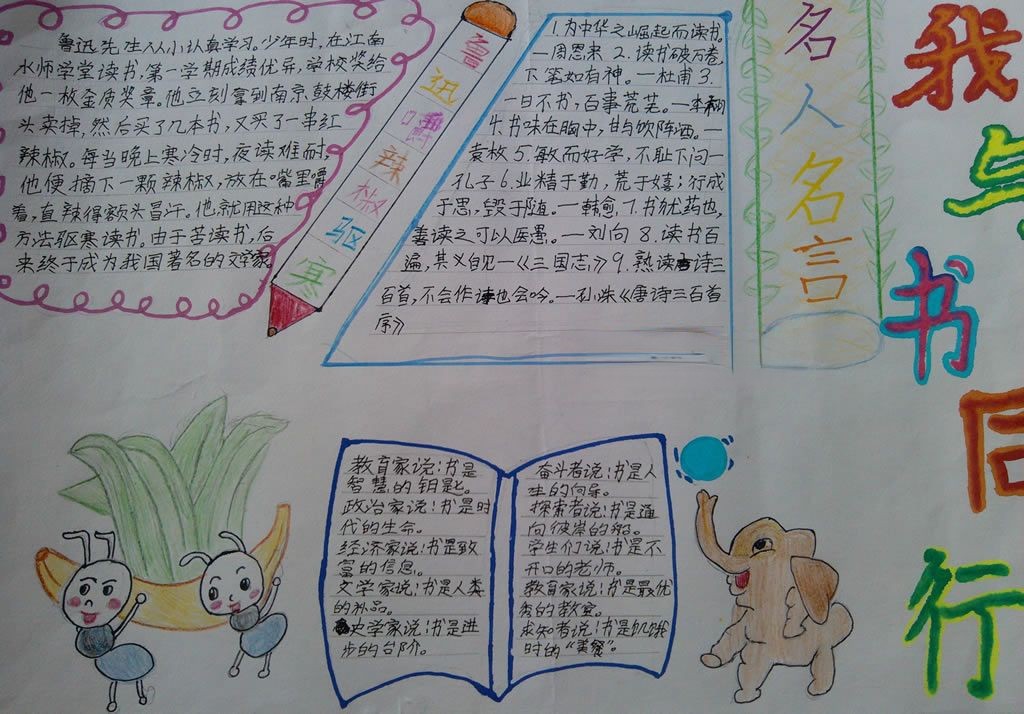 鲁迅先生从小认真学习。少年时，在江南
水师学堂读书，第一学期成绩优异，学校奖给
他一枚金质奖章。他立刻拿到南京鼓楼街
头卖掉，然后买了几本书，又买了一串红
辣椒。每当晚上寒冷时，夜读难耐，
他便摘下一颗辣椒，放在嘴里嚼
着，直辣得额头冒汗。他就用这种
方法驱寒读书。由于苦读书，后
来终于成为我国著名的文学家
鲁迅嚼辣椒驱寒
1.为中华之崛起而读书。
—周恩来 2.读书破万卷，
下笔如有神。—杜甫 3.
一日不书，百事荒芜。—李
4.书味在胸中，甘与饮陈酒。—
袁枚 5.敏而好学，不耻下问—
孔子 6.业精于勤，荒于嬉；行成
于思，毁于随。—韩愈，7.书犹药也，
善读之可以医愚。—刘向 8.读书百
遍，其义自见—《三国志》9.熟读唐诗三
百首，不会作诗也会吟。—孙洙《唐诗三百首
序》
名人名言
我与书同行
教育家说：书是
智慧的钥匙。
政治家说：书是时
代的生命。
经济家说：书是致
富的信息。
文学家说：书是人类
的补品。
史学家说：书是进
步的台阶。
奋斗者说：书是人
生的向导。
探索者说：书是通
向彼岸的船。
学生们说：书是不
开口的老师。
教育家说：书是最优
秀的教室。
求知者说：书是饥饿
时的“美餐”。